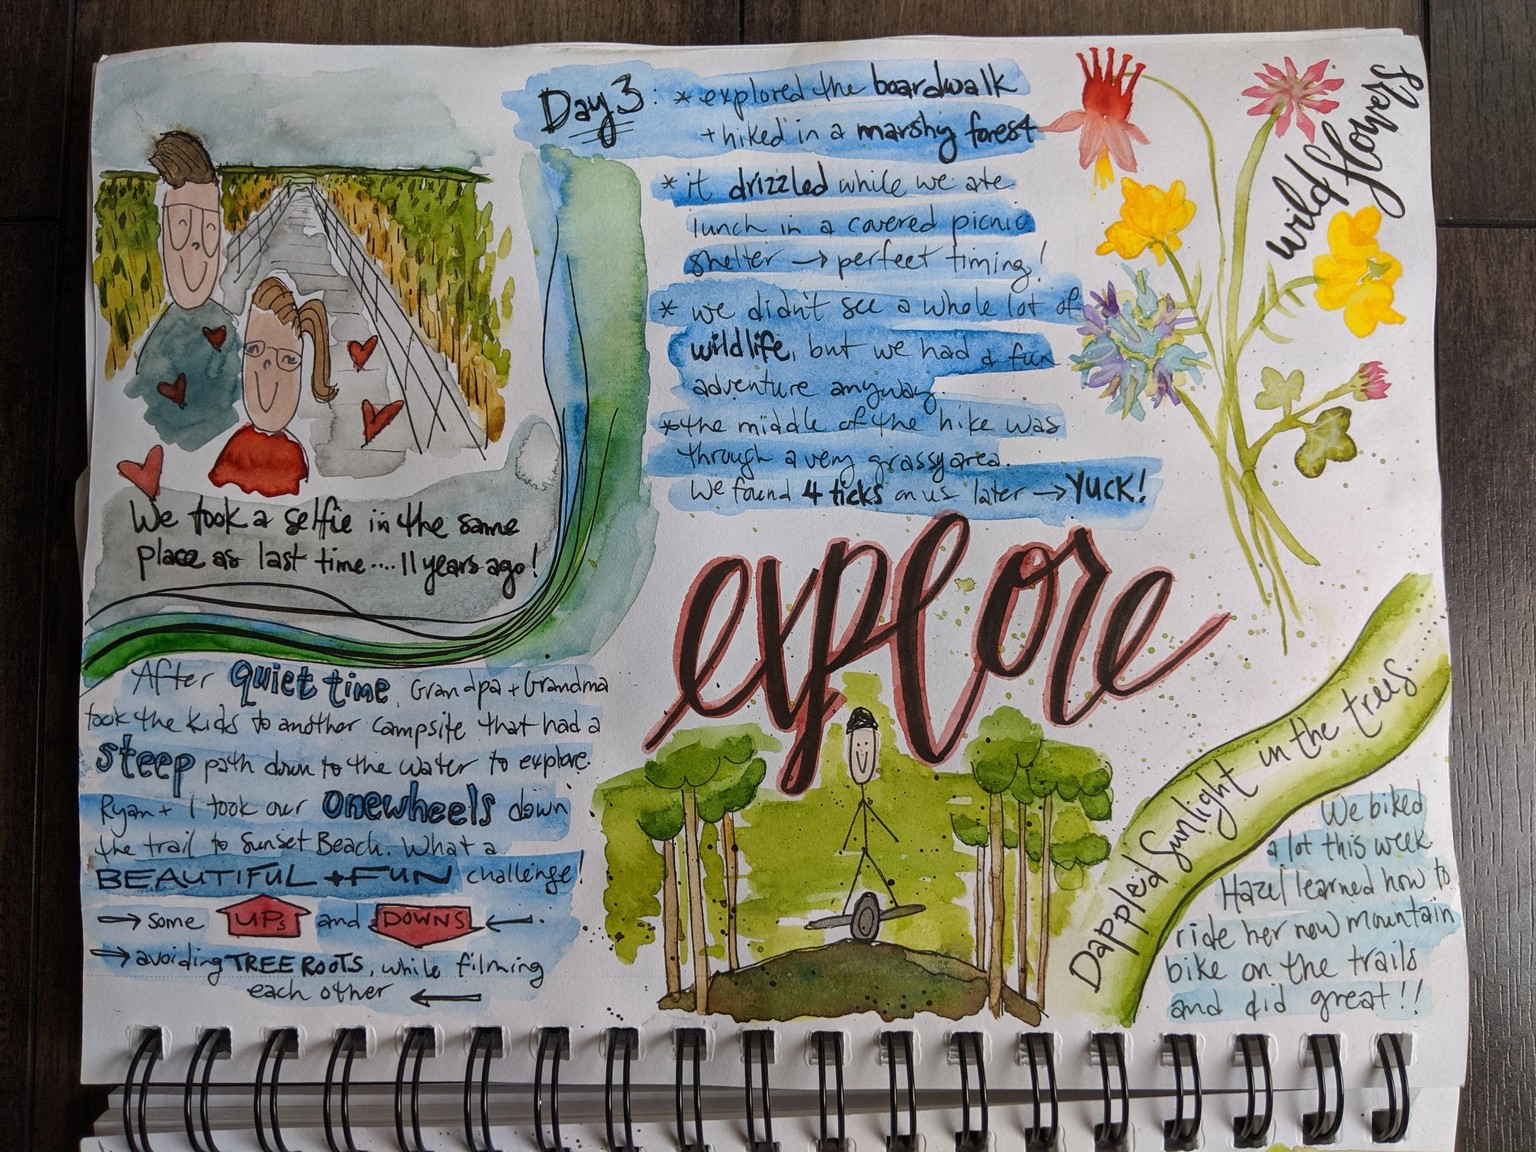 Day 3: * explored the boardwalk
+ hiked in a marshy forest
* it drizzled while we ate
lunch in a covered picnic
shelter → perfect timing!
* we didn't see a whole lot of
wildlife, but we had a fun
adventure anyway.
* the middle of the hike was
through a very grassy area.
We found 4 ticks on us later → YUCK!
wild flowers
We took a selfie in the same
place as last time.... 11 years ago!
explore
After quiet time, Grandpa + Grandma
took the kids to another campsite that had a
steep path down to the water to explore.
Ryan + I took our onewheels down
the trail to Sunset Beach. What a
BEAUTIFUL + FUN challenge!
→ some UPs and DOWNS ←
→ avoiding TREE ROOTS, while filming
each other ←
Dappled Sunlight in the trees.
We biked
a lot this week
Hazel learned how to
ride her new mountain
bike on the trails
and did great!!